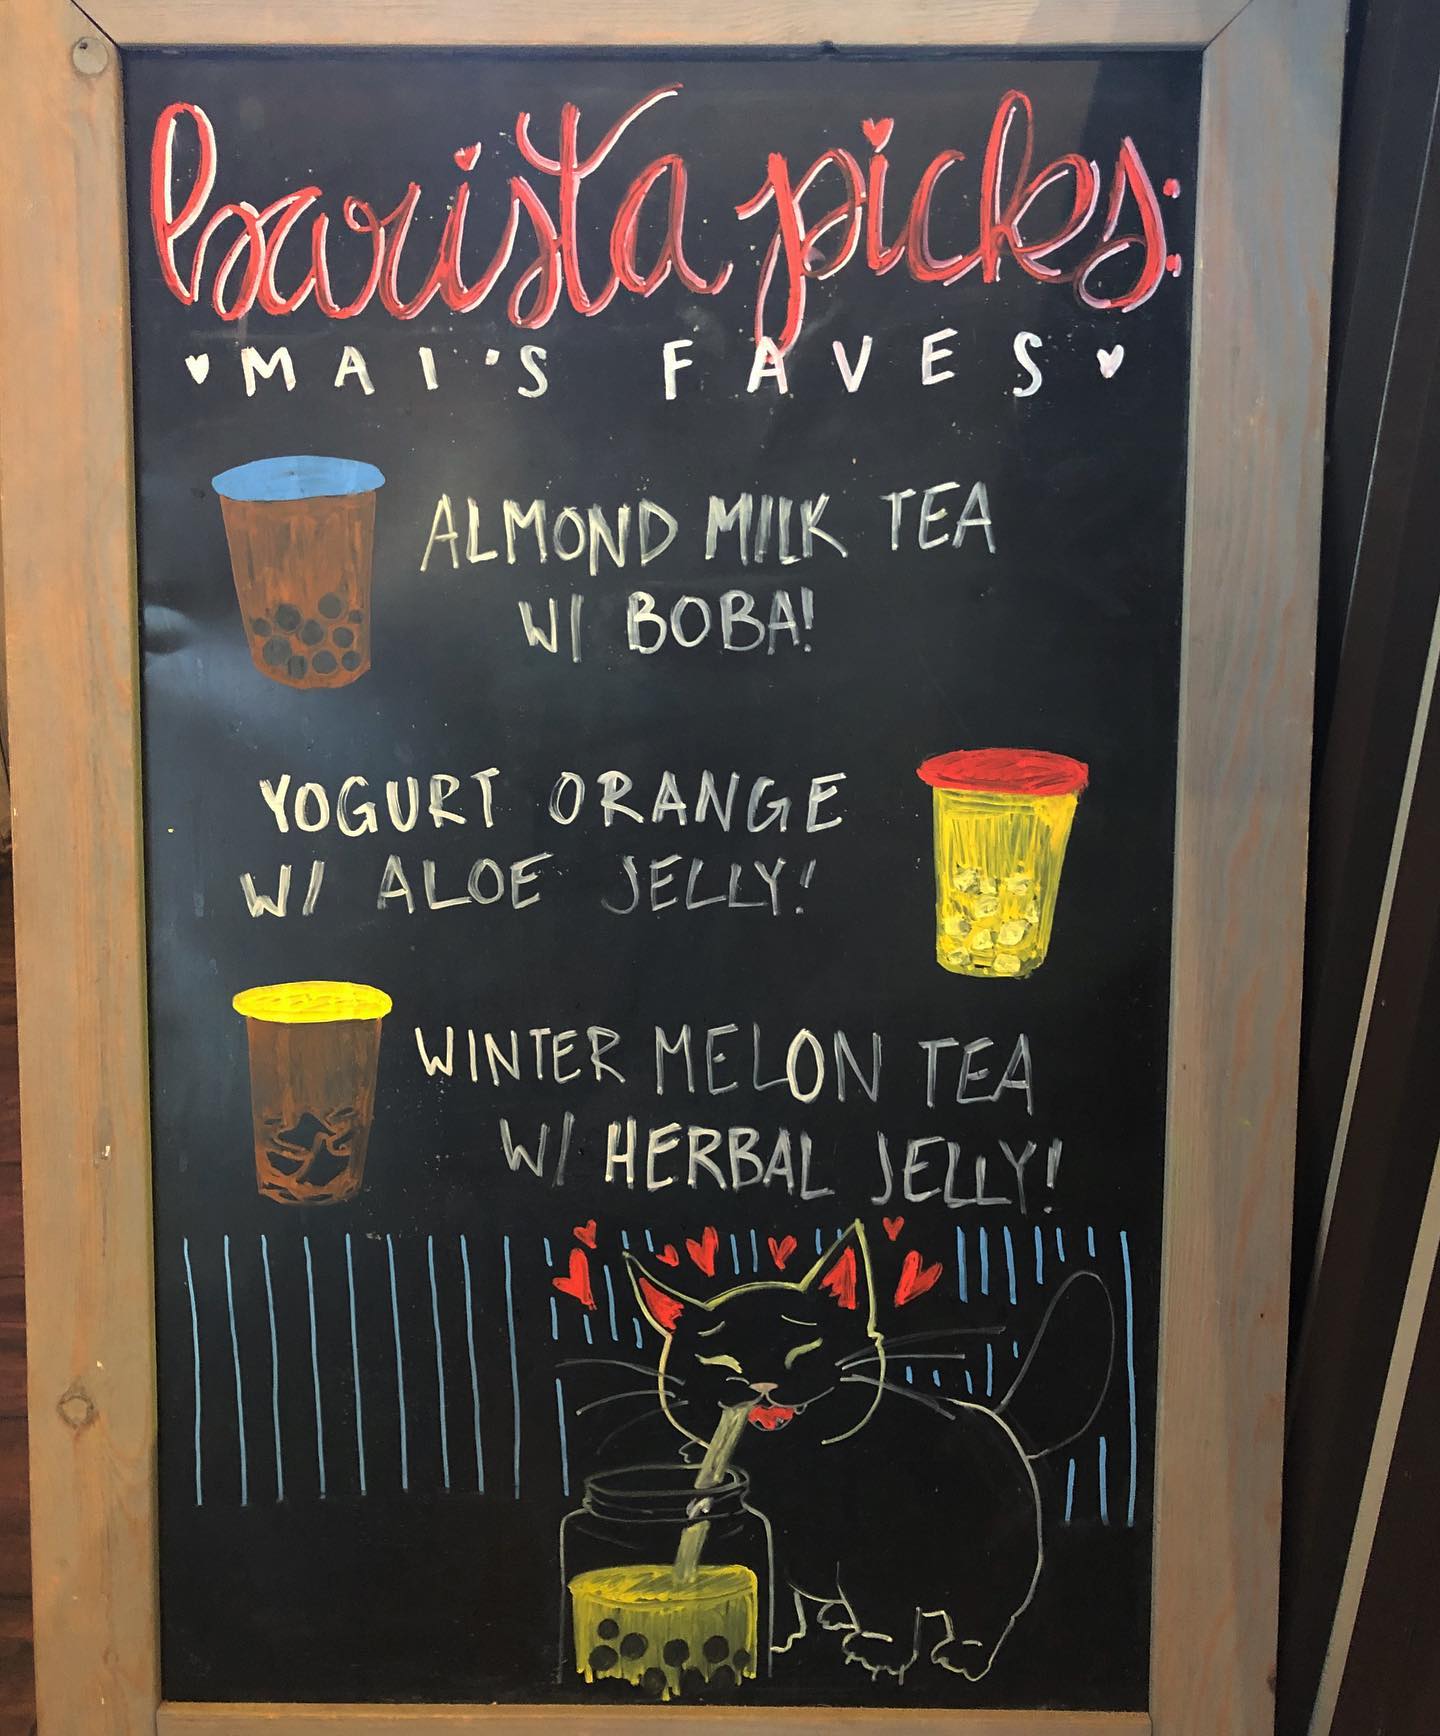 barista picks:
MAI'S FAVES
ALMOND MILK TEA
W/ BOBA!
YOGURT ORANGE
W/ ALOE JELLY!
WINTER MELON TEA
W/ HERBAL JELLY!